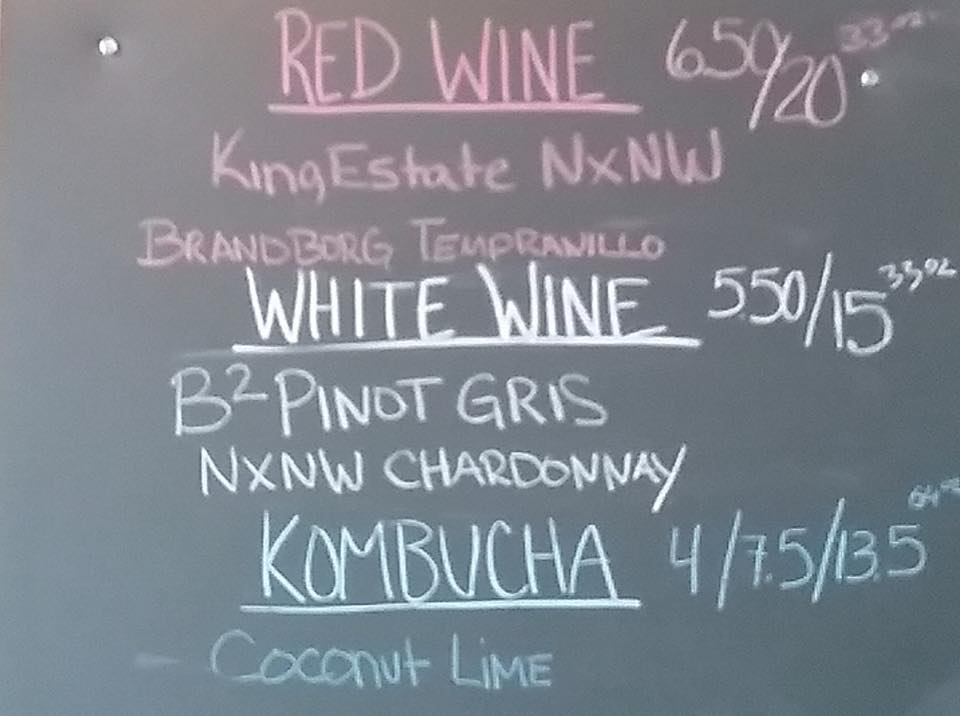 RED WINE 650/20 33oz
KingEstate NxNW
BRANDBORG TEMPRANILLO
WHITE WINE 5.50/15 33oz
B² PINOT GRIS
NXNW CHARDONNAY
KOMBUCHA 4/7.5/13.5 64oz
Coconut LIME